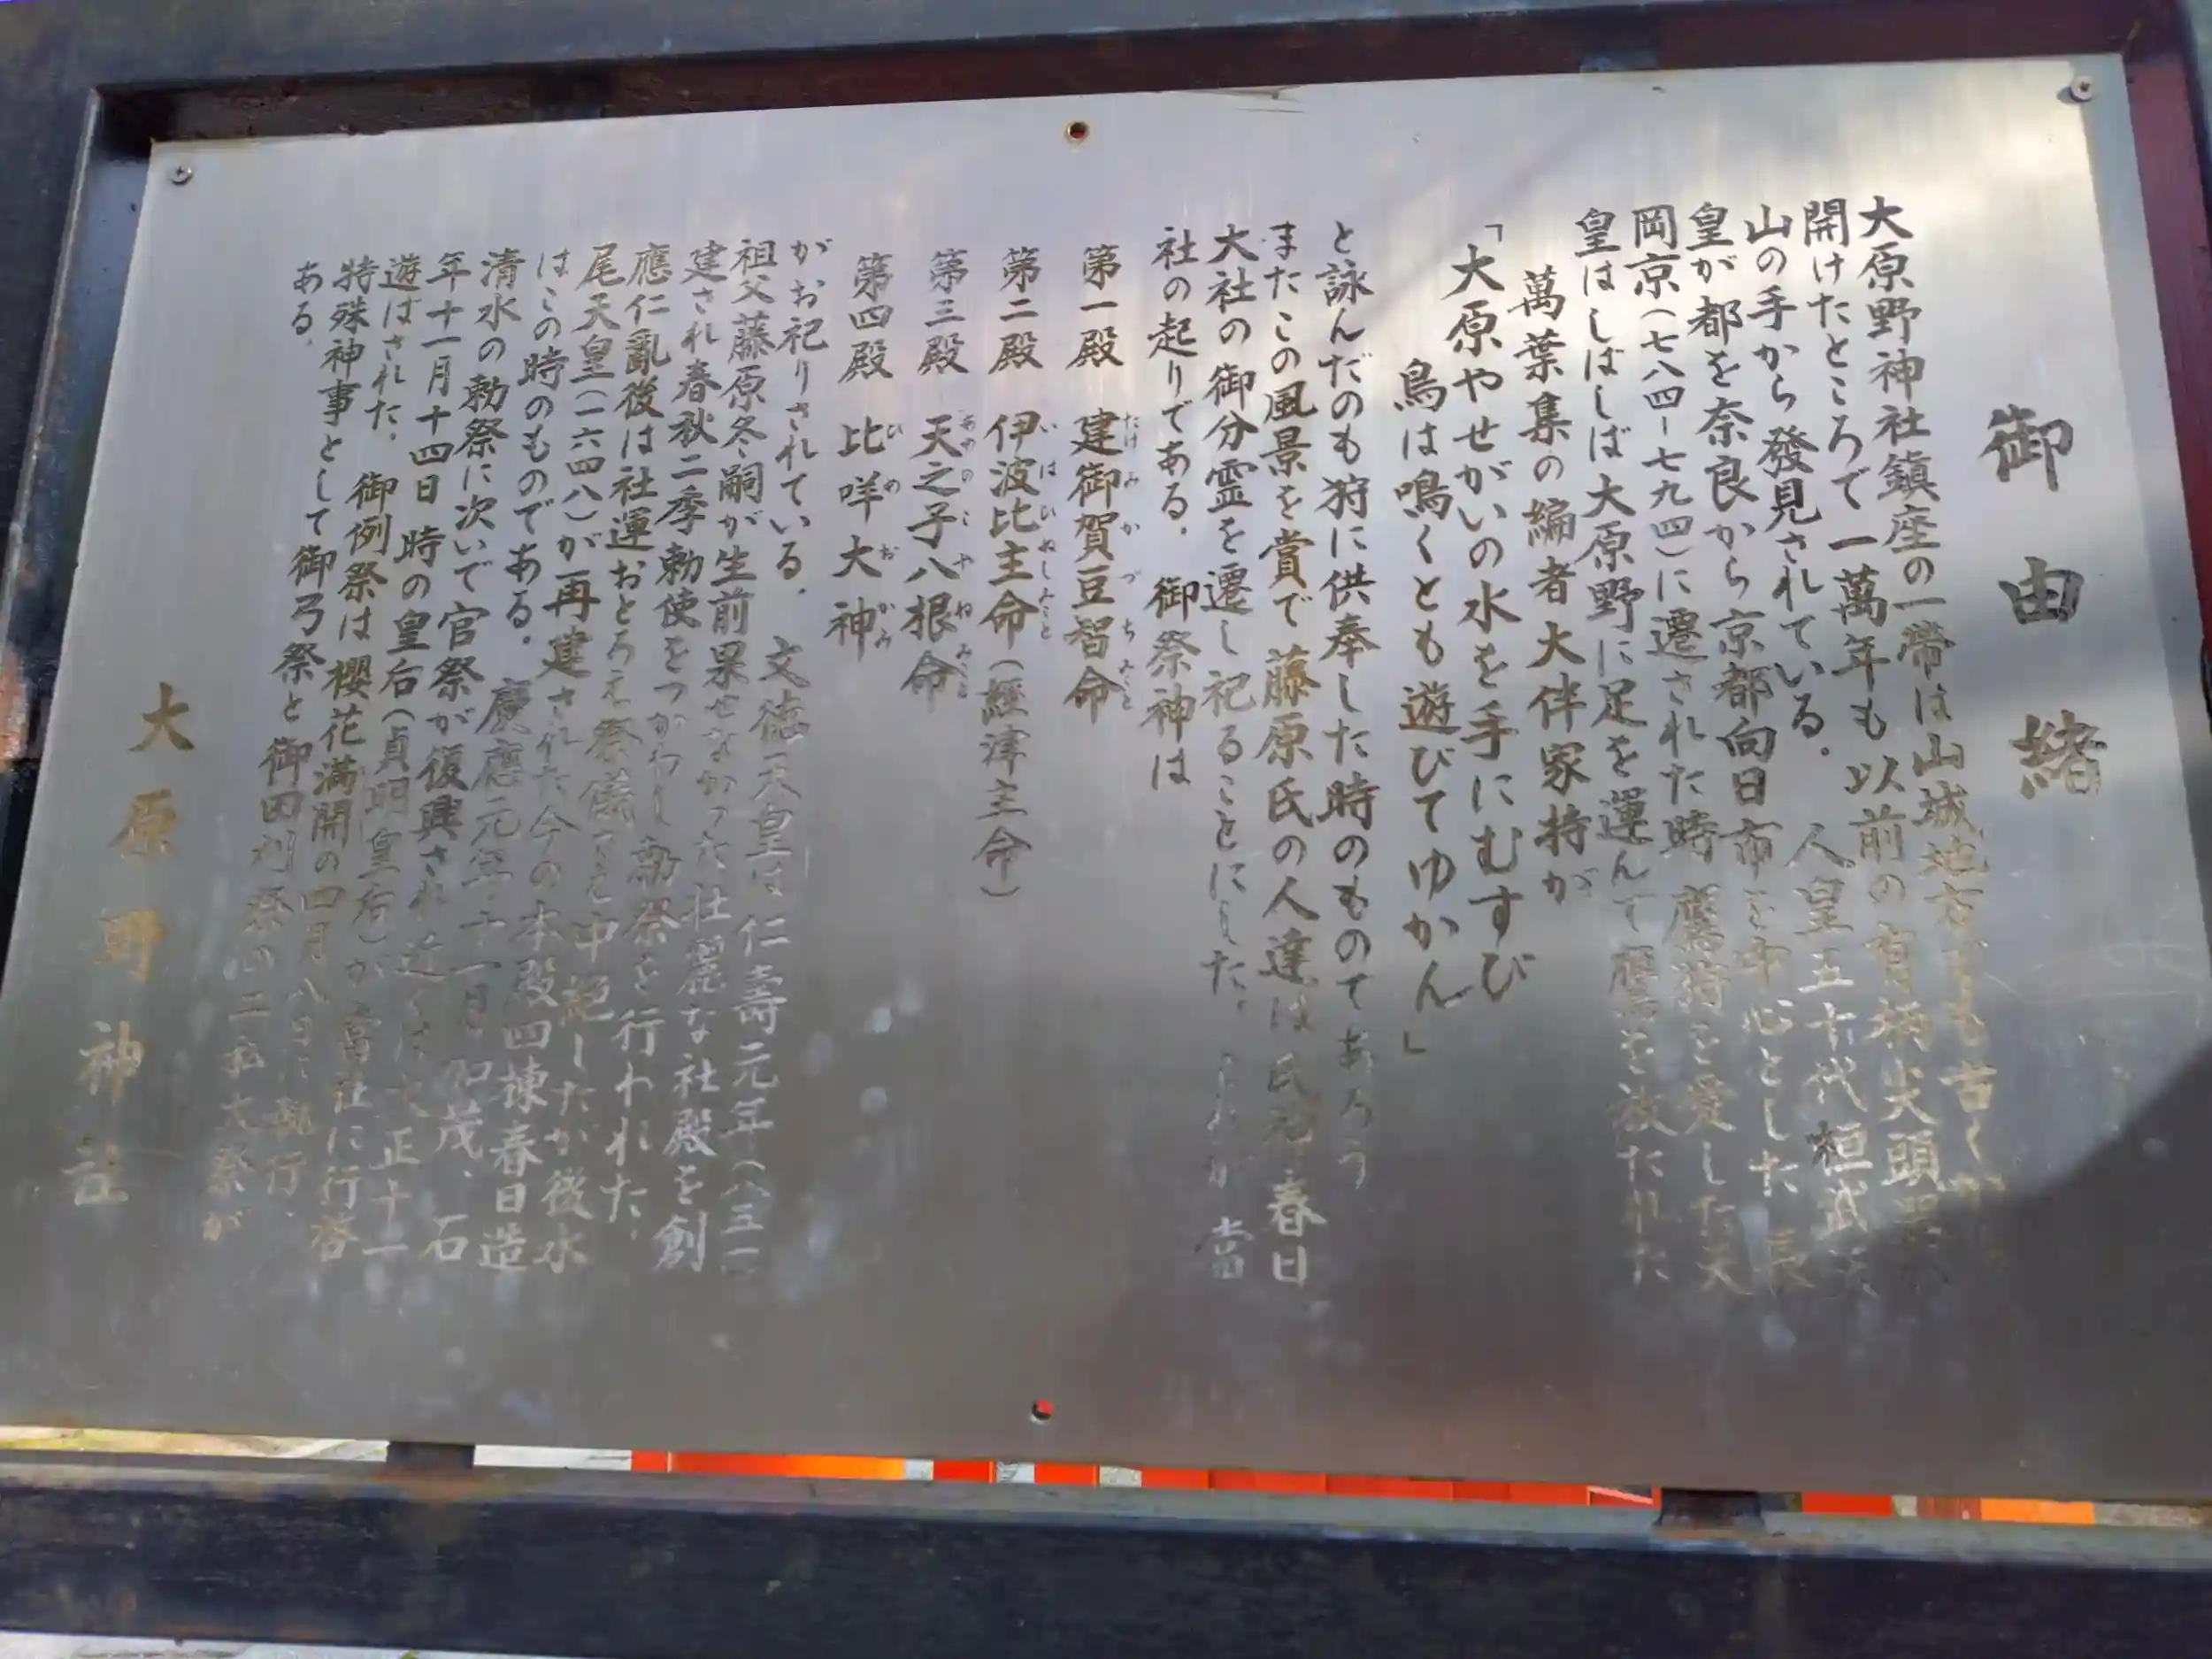 御由緒
大原野神社鎮座の一帯は山城地方でも古く
開けたところで一萬年も以前の有柄尖頭器が
山の手から發見されている。 人皇五十代桓武天
皇が都を奈良から京都向日市を中心とした長
岡京(七八四ー七九四)に遷された時鷹狩を愛した天
皇はしばしば大原野に足を運んで鷹を放たれた
萬葉集の編者大伴家持が
「大原やせがいの水を手にむすび
鳥は鳴くとも遊びてゆかん」
と詠んだのも狩に供奉した時のものであろう
またこの風景を賞で藤原氏の人達は氏神春日
大社の御分霊を遷し祀ることにした。 これが當
社の起りである。 御祭神は
第一殿 建御賀豆智命
たけみかづちみこと
第二殿 伊波比主命(經津主命)
いはひぬしみこと
第三殿 天之子八根命
あめのこやねみこと
第四殿 比咩大神
ひめおかみ
がお祀りされている。 文徳天皇は仁壽元年(八五一)
祖父藤原冬嗣が生前果せなかった壮麗な社殿を創
建され春秋二季勅使をつかわし勅祭を行われた。
應仁亂後は社運おとろえ祭儀すら中絶したが後水
尾天皇(一六四八)が再建された今の本殿四棟春日造
はこの時のものである。 慶應元年十一月加茂、石
清水の勅祭に次いで官祭が復興され近くは大正十一
年十一月十四日時の皇后(貞明皇后)が當社に行啓
遊ばされた。 御例祭は櫻花満開の四月八日に執行、
特殊神事として御弓祭と御田刈祭の二私大祭が
ある。
大原野神社